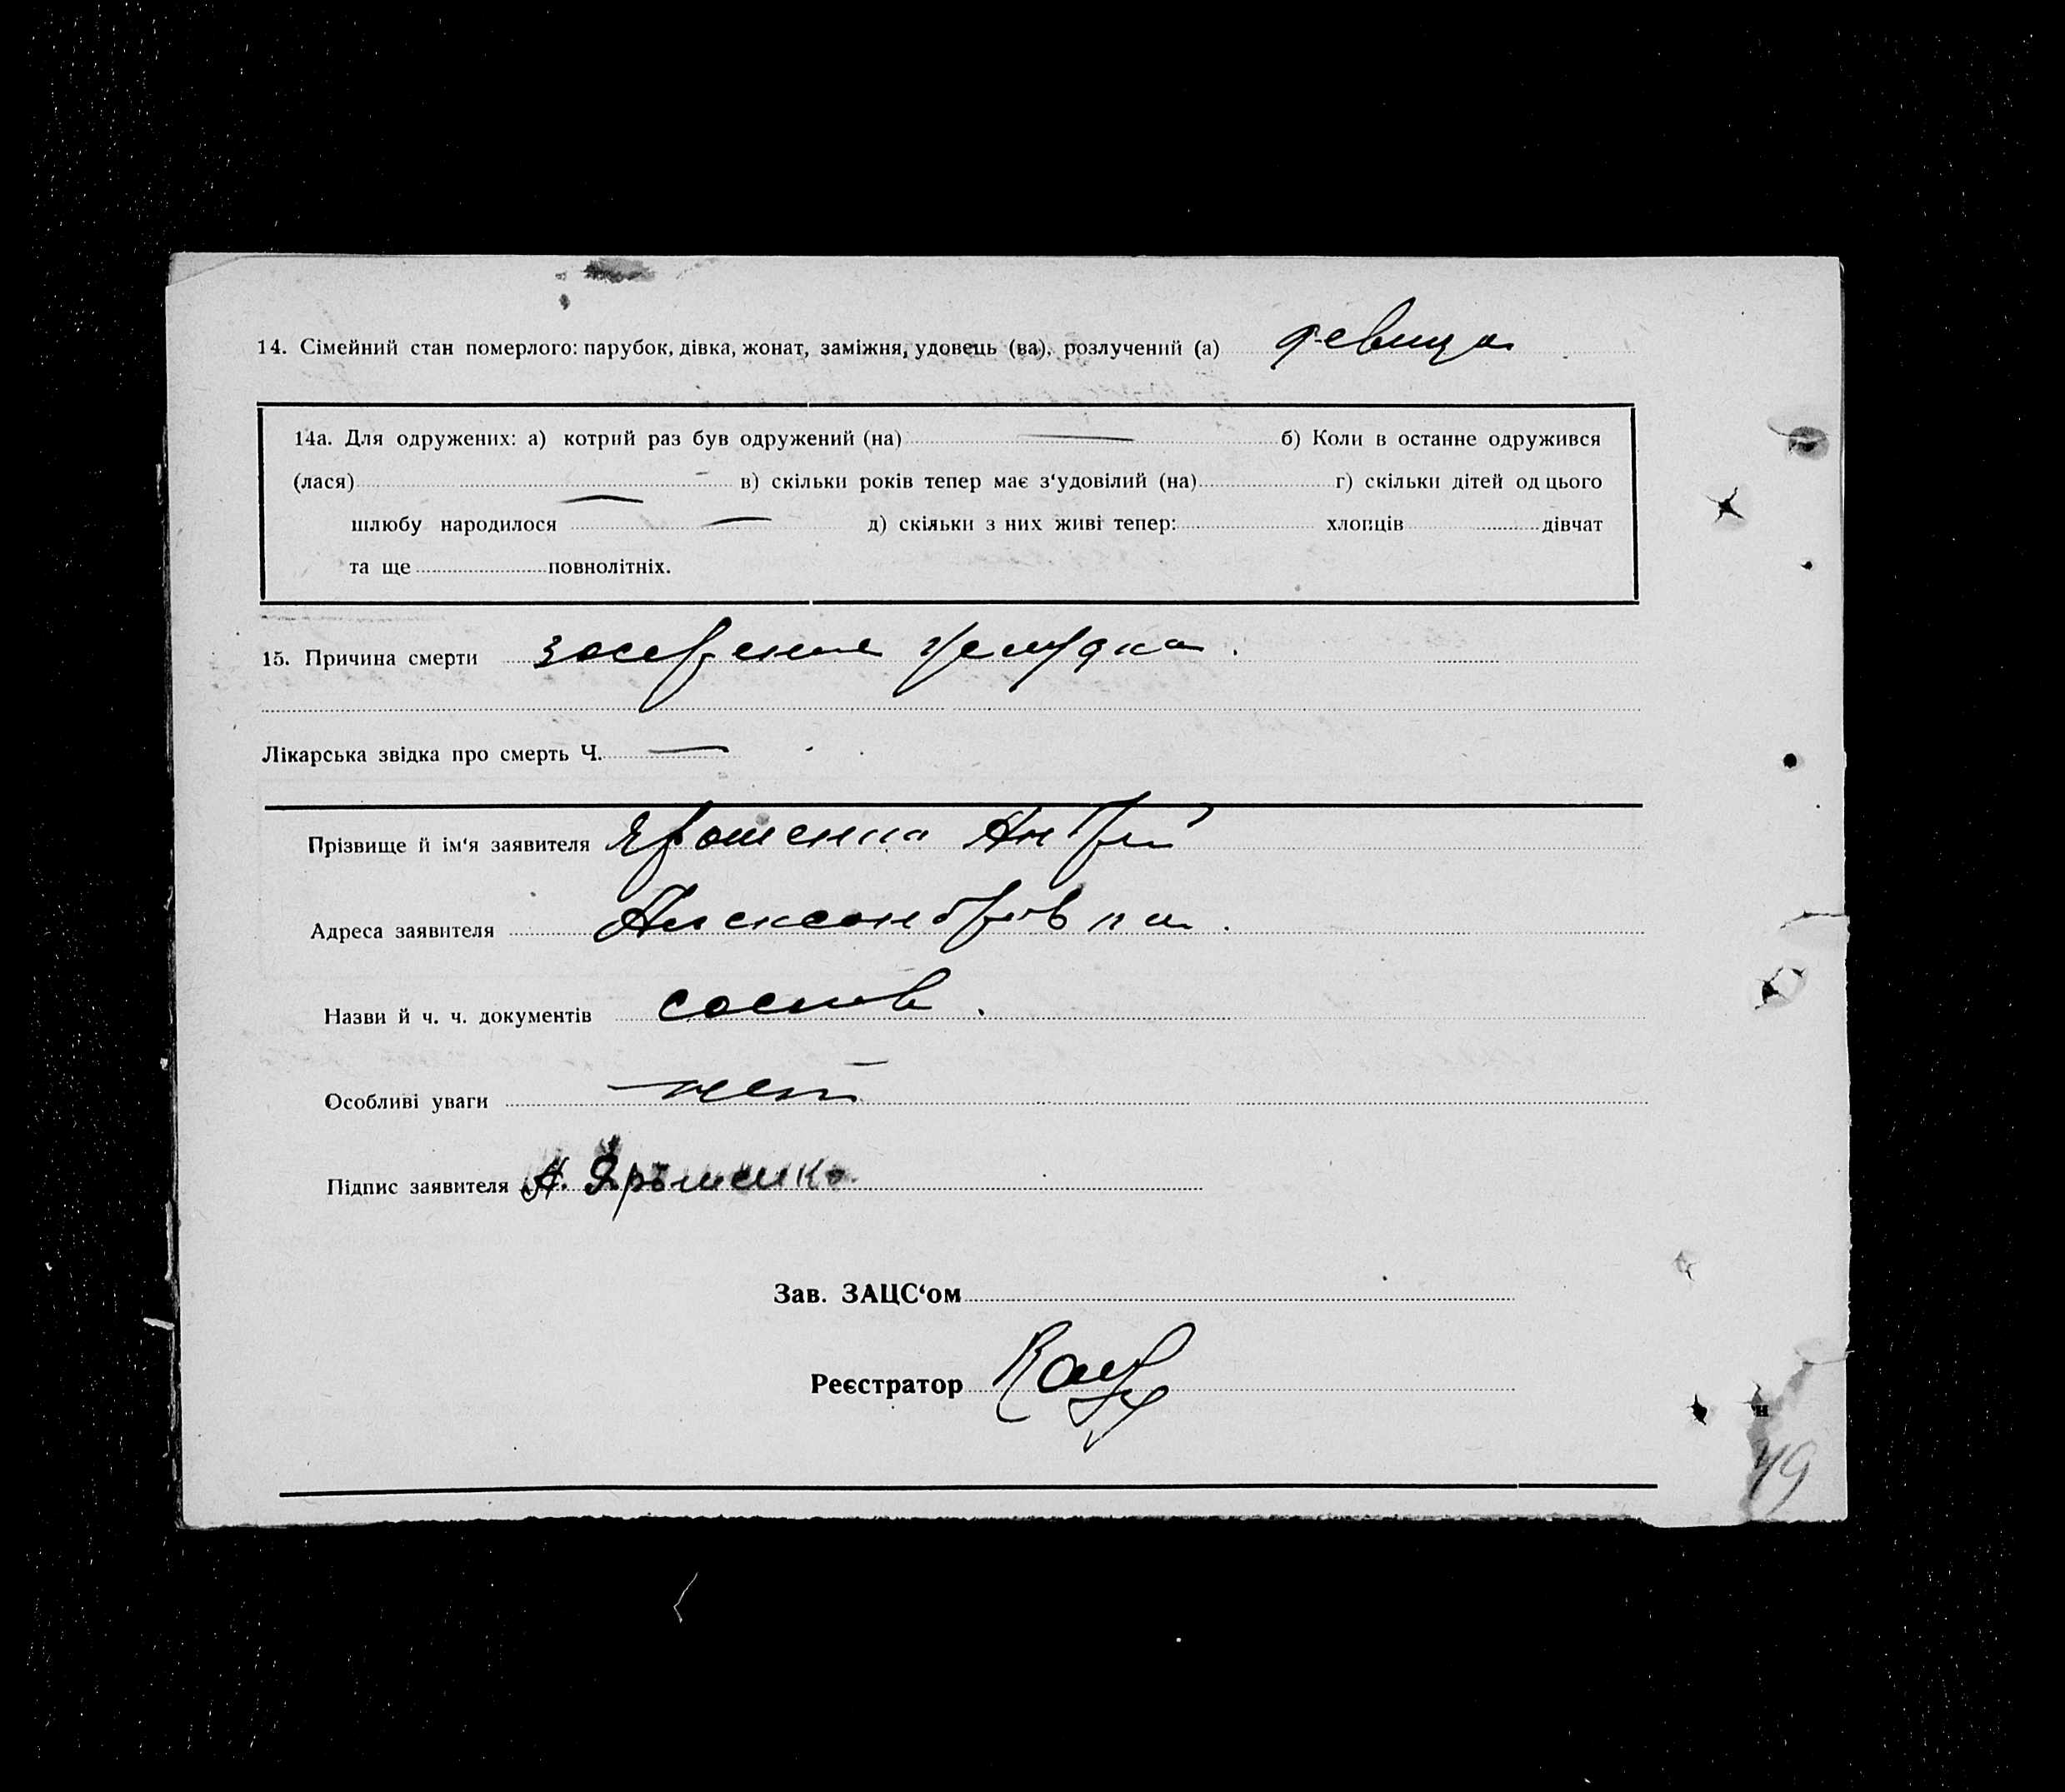 14. Сімейний стан померлого: парубок, дівка, жонат, заміжня, удовець (ва), розлучений (а) девица
14а. Для одружених: а) котрий раз був одружений (на) — б) Коли в останнє одружився
(лася) — в) скільки років тепер має з‘удовілий (на) г) скільки дітей од цього
шлюбу народилося — д) скільки з них живі тепер: хлопців дівчат
та ще повнолітніх.
15. Причина смерти засорение желудка.
Лікарська звідка про смерть Ч. —
Прізвище й ім‘я заявителя Ярошенко Андрей
Адреса заявителя Александровка.
Назви й ч. ч. документів
Особливі уваги нет
Підпис заявителя А. Ярошенко
Зав. ЗАЦС‘ом
Реєстратор
49